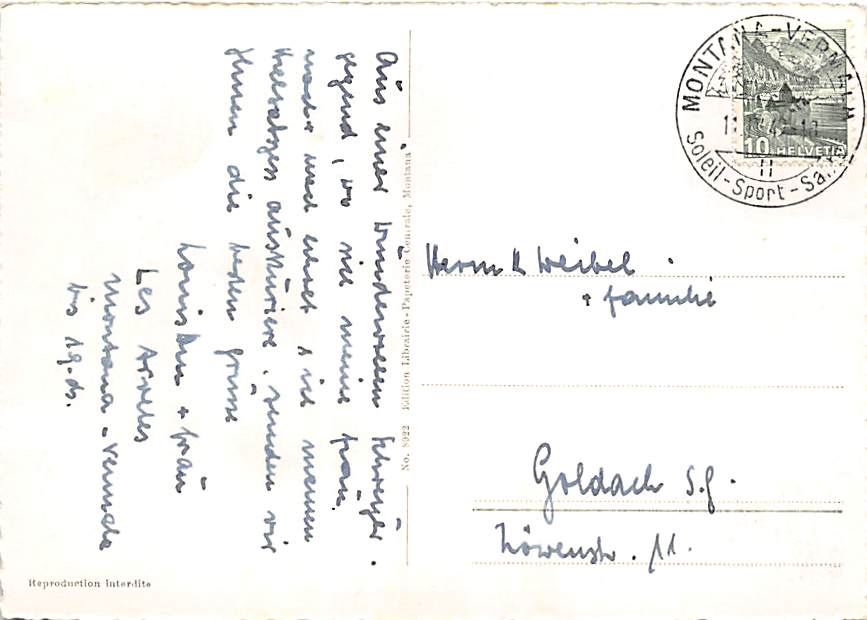 Aus einer wundervollen Schweizer.
gegend, wo sich meine Frau
noch und ich meinen
auskuriere, senden wir
Ihnen die besten Grüsse
Louis & Frau
Les
Montana-Vermala
bis 19. ds.
No. 8922 Edition Librairie-Papeterie Centrale, Montana
Reproduction interdite
MONTANA-VERMALA
Soleil-Sport-Santé
10 HELVETIA
Herrn H Weibel
+ Familie
Goldach S.G.
Löwenstr. 11.